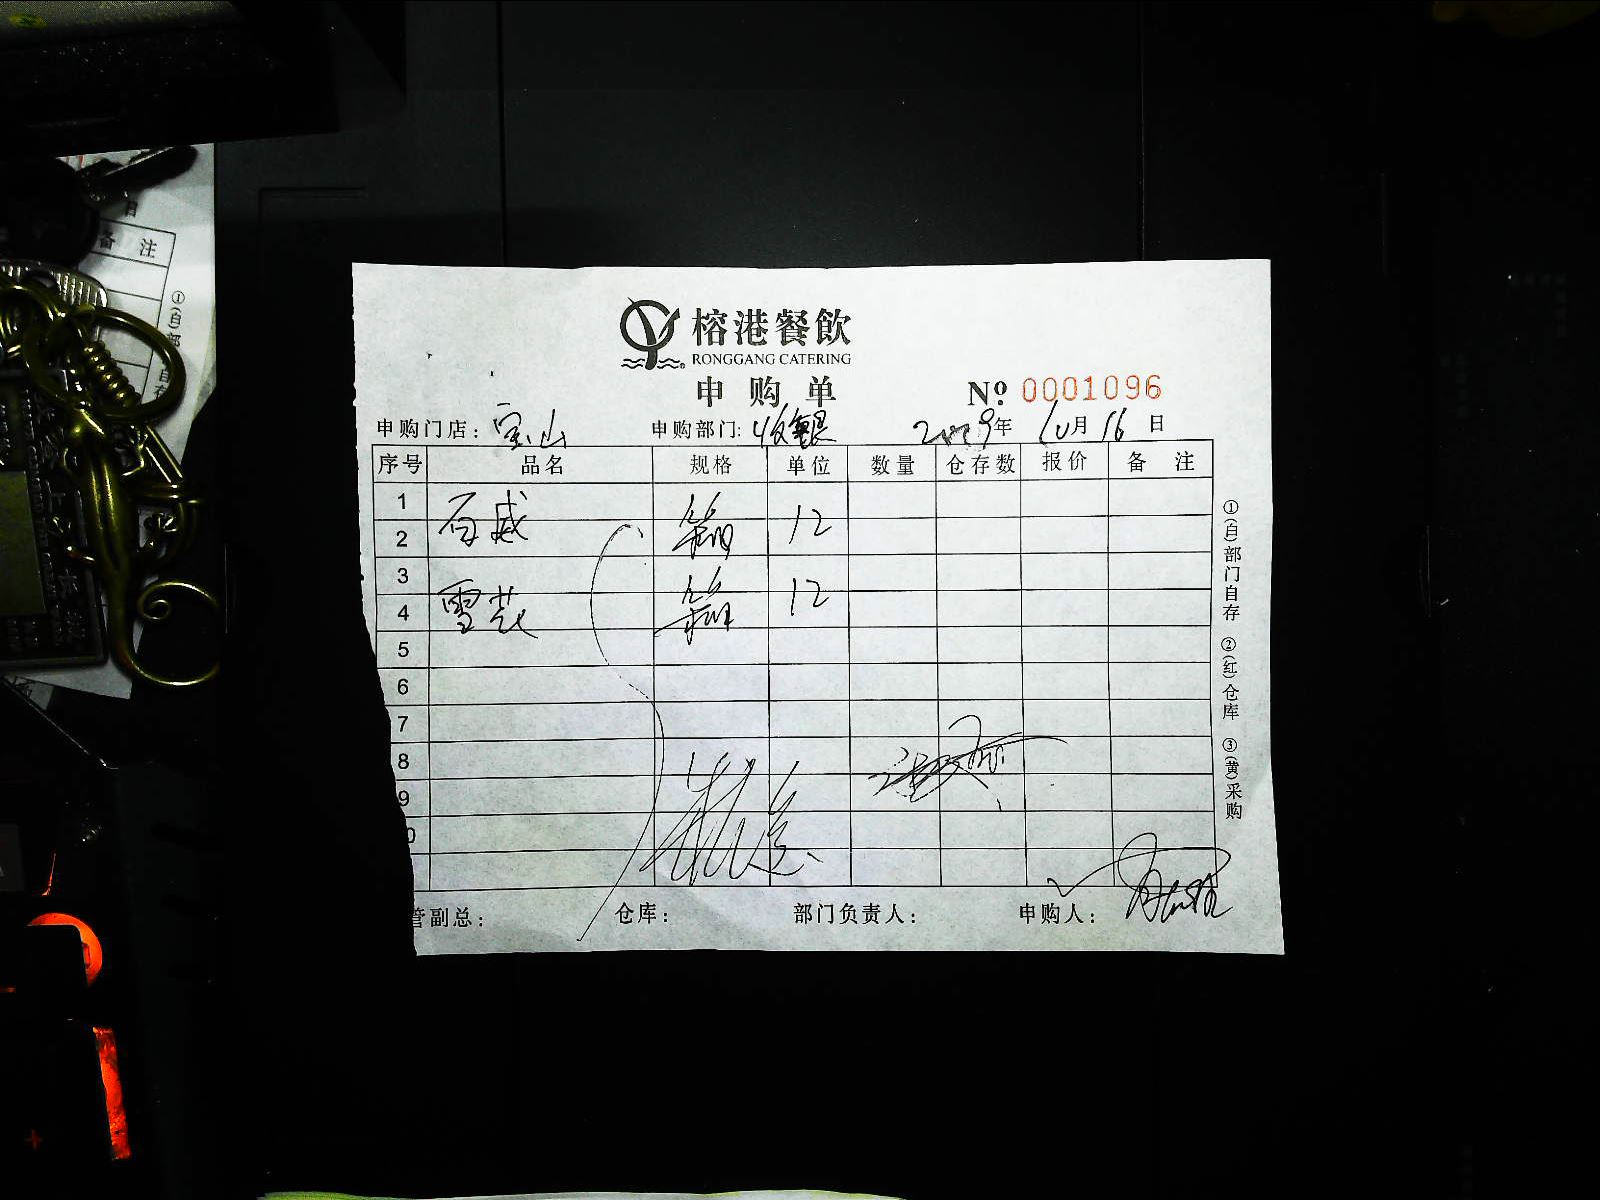 榕港餐飲
RONGGANG CATERING
申购单 Nº 0001096
申购门店：宝山 申购部门：收银 2019年10月16日
序号 品名 规格 单位 数量 仓存数 报价 备注
1
2 百威 箱 12
3
4 雪花 箱 12
5
6
7
8
9
0
管副总： 仓库： 部门负责人： 申购人：
①(白)部门自存 ②(红)仓库 ③(黄)采购
备 注